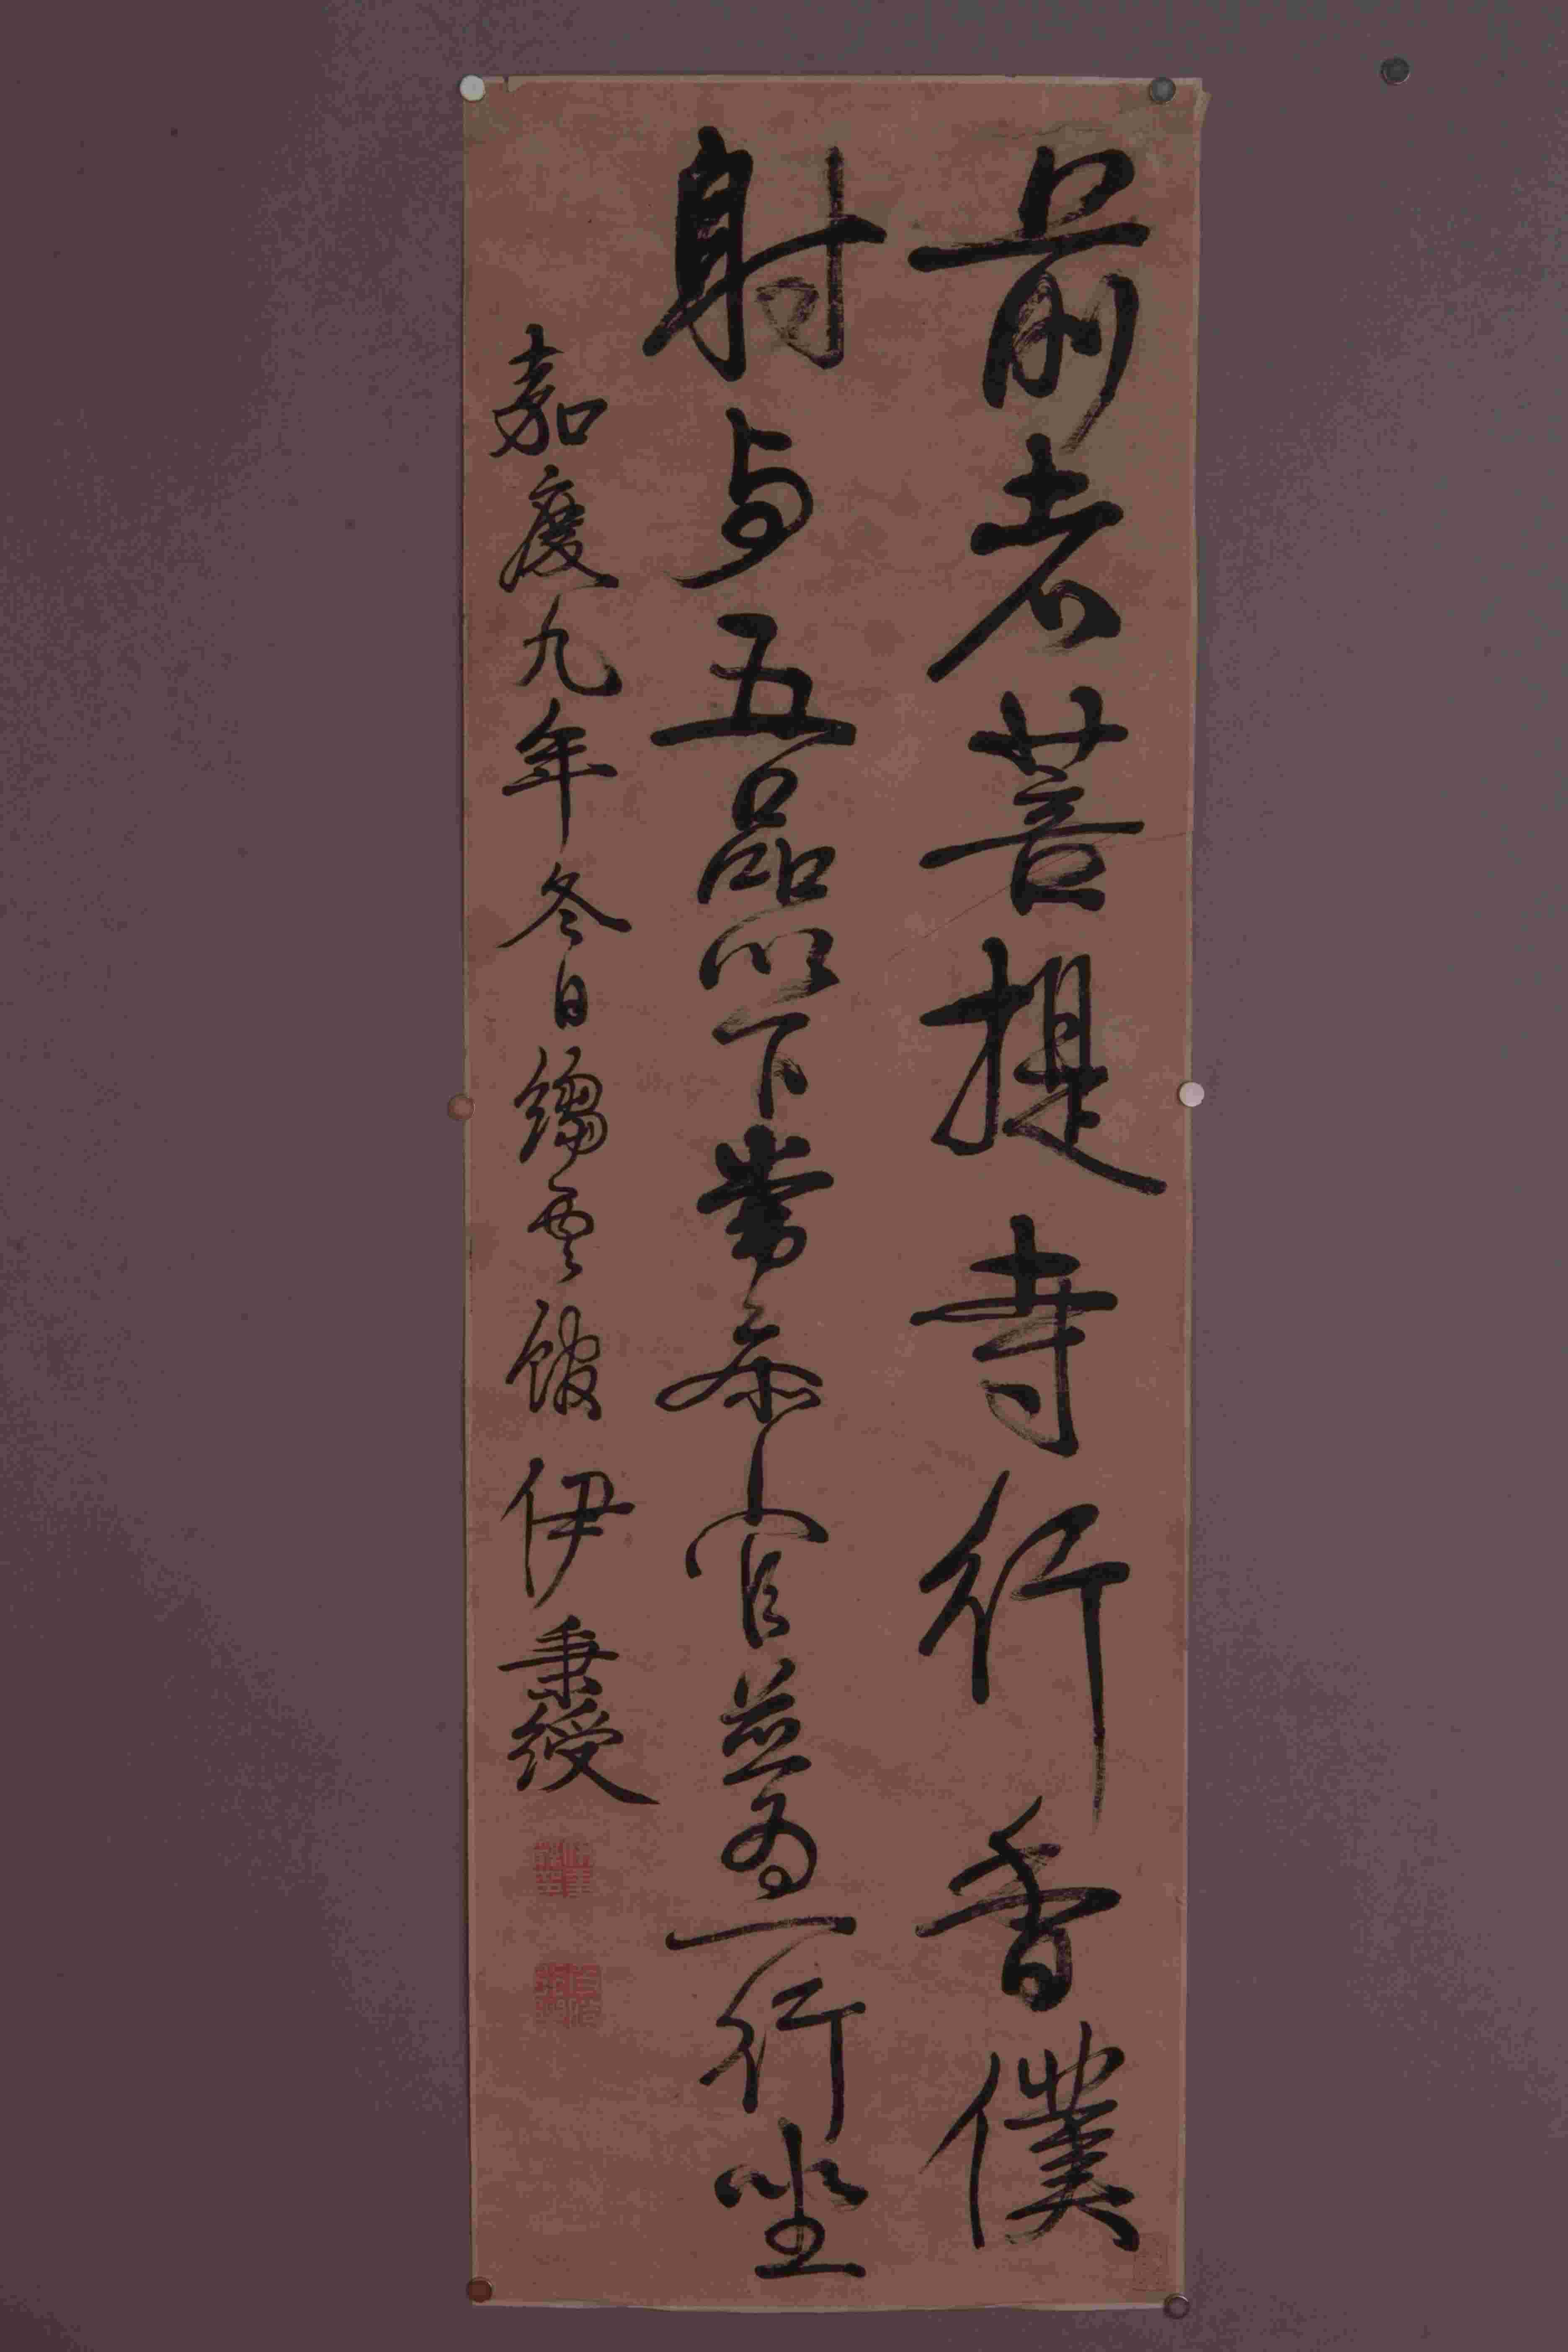 前者菩提寺行香僕
射与五品以下常叅官並為一行坐
嘉慶九年冬日 伊秉綬